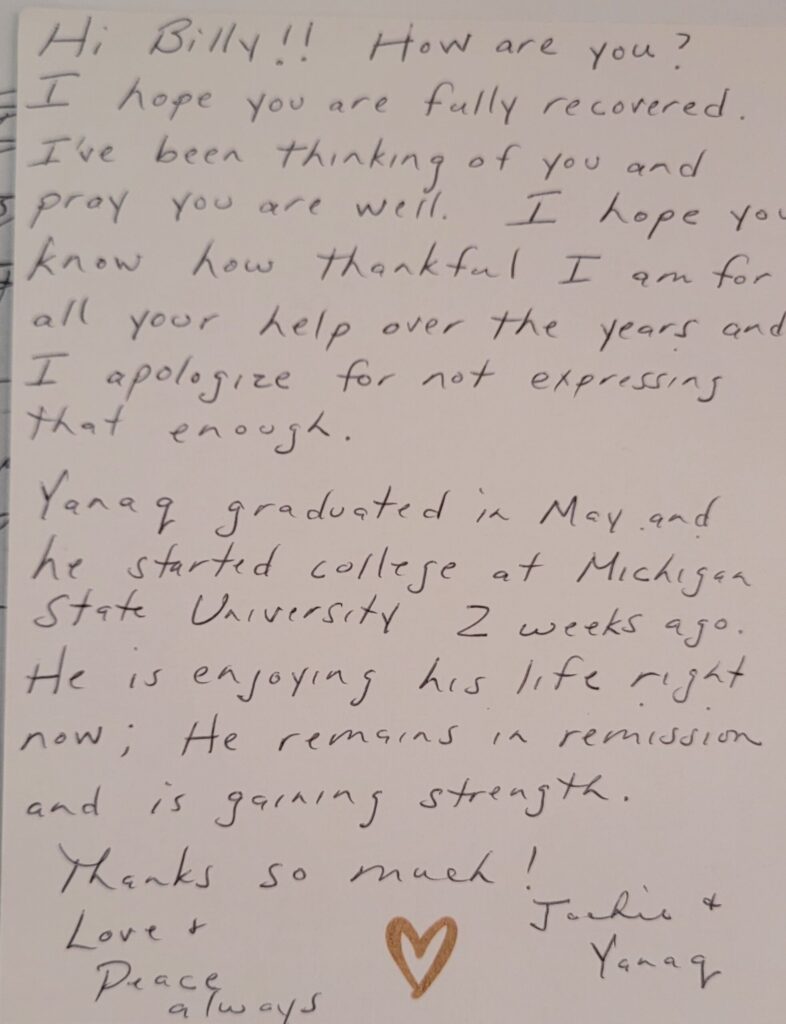 Hi Billy!! How are you?
I hope you are fully recovered.
I've been thinking of you and
pray you are well. I hope you
know how thankful I am for
all your help over the years and
I apologize for not expressing
that enough.
Yanaq graduated in May and
he started college at Michigan
State University 2 weeks ago.
He is enjoying his life right
now; He remains in remission
and is gaining strength.
Thanks so much!
Love +
Peace
always
Jackie +
Yanaq